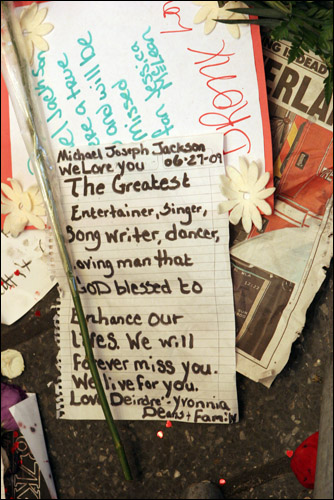 Thank
you
Michael Joseph Jackson
We Love you 06-27-09
The Greatest
Entertainer, Singer,
Song Writer, dancer,
Loving man that
GOD blessed to
Enhance Our
Lives. We will
Forever miss you.
We live for you.
Love Deirdre Yvonnia
Deans + Family
el Jackson
were a
and will be
missed
fan
ERLA
ING IS DEA